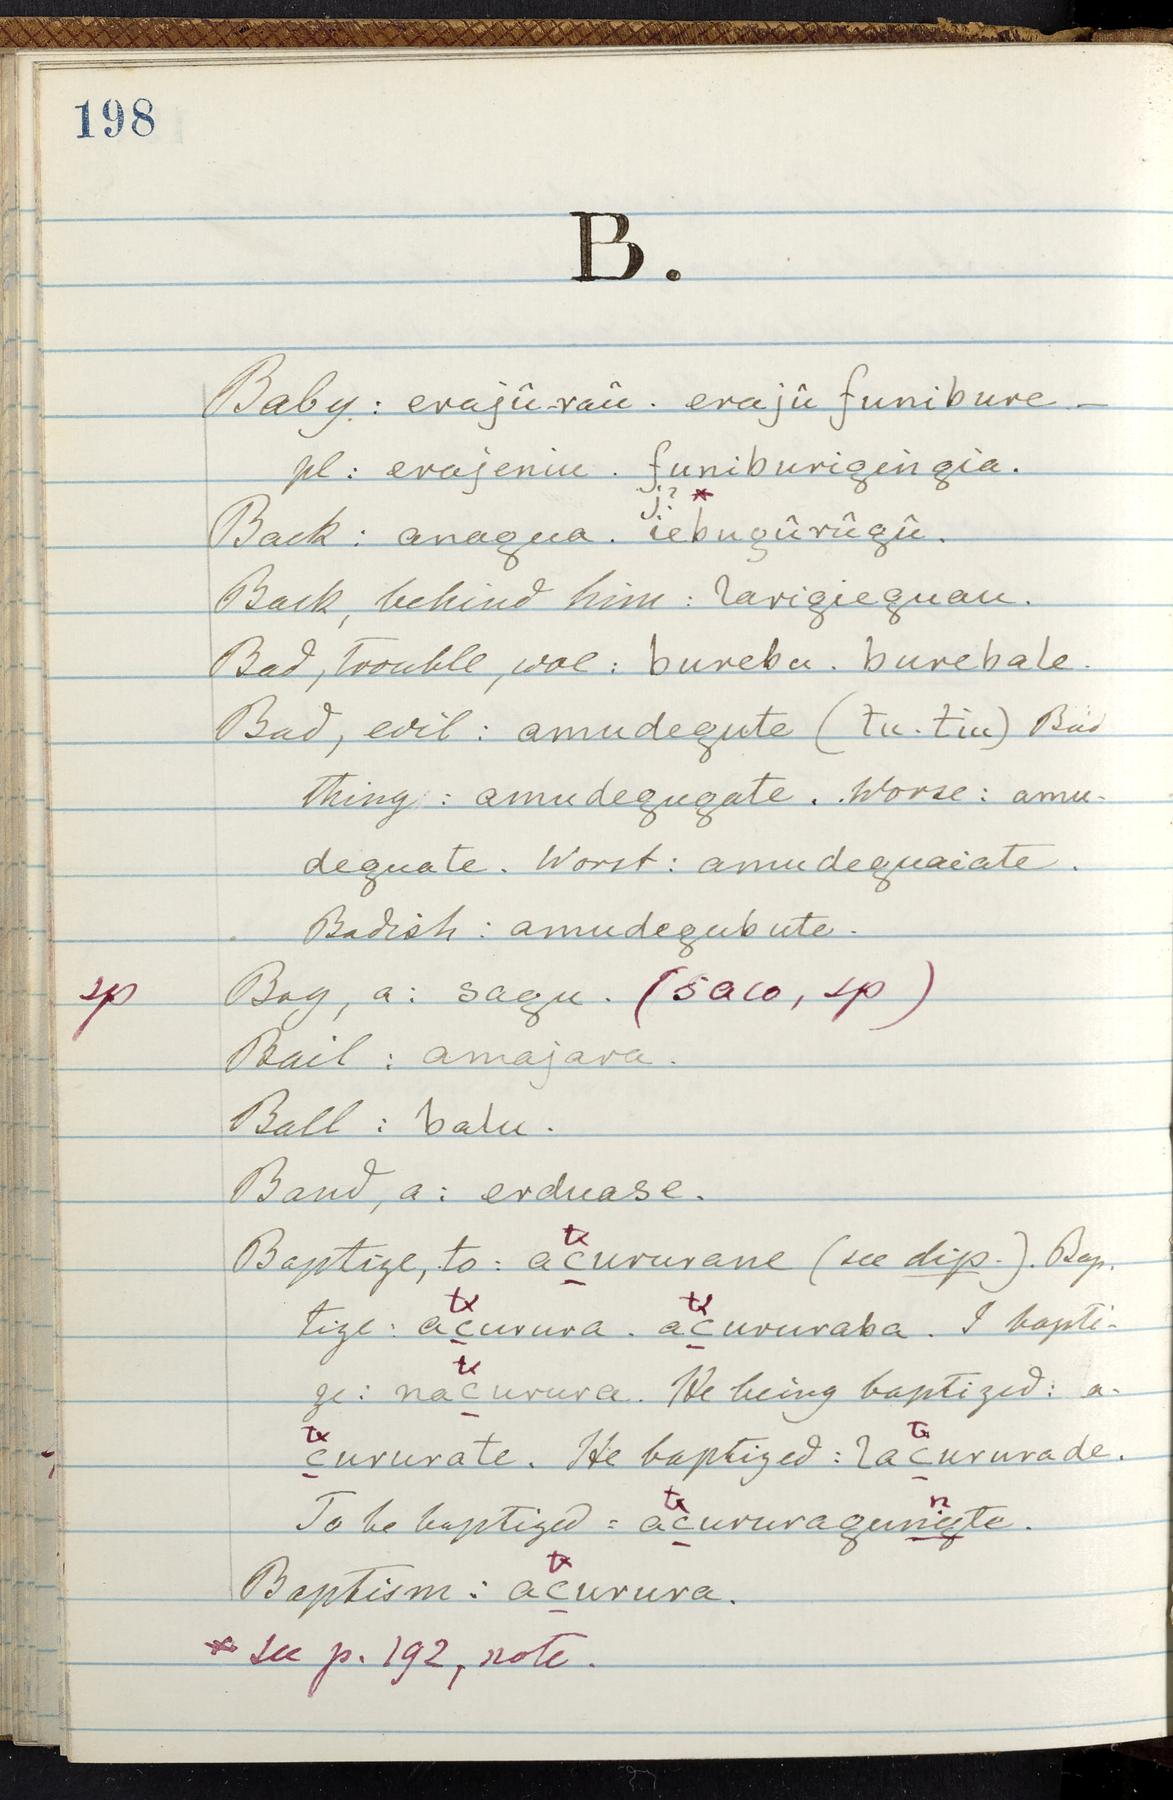 198
B.
Baby: erajû-raû. erajû funibure –
pl: erajeniu. funiburigingia.
j? *
Back: anagua. iebugûrûgû.
Back, behind him: larigieguau.
Bad, trouble, woe: bureba. burebale.
Bad, evil: amudegute (tu. tiu) Bad
thing: amudegugate. Worse: amu-
deguate. Worst: amudeguaiate.
Badish: amudegubute.
sp Bag, a: sagu. (saco, sp)
Bail: amajara.
Ball: balu.
Band, a: erduase.
tx
Baptize, to: acururane (see dip.). Bap.
tx tx
tize: acurura. acururaba. I bapti-
tx
ze: nacurura. He being baptized: a-
tx tx
cururate. He baptized: lacururade.
tx n
To be baptized = acururagunigte.
tx
Baptism: acurura.
* see p. 192, note.